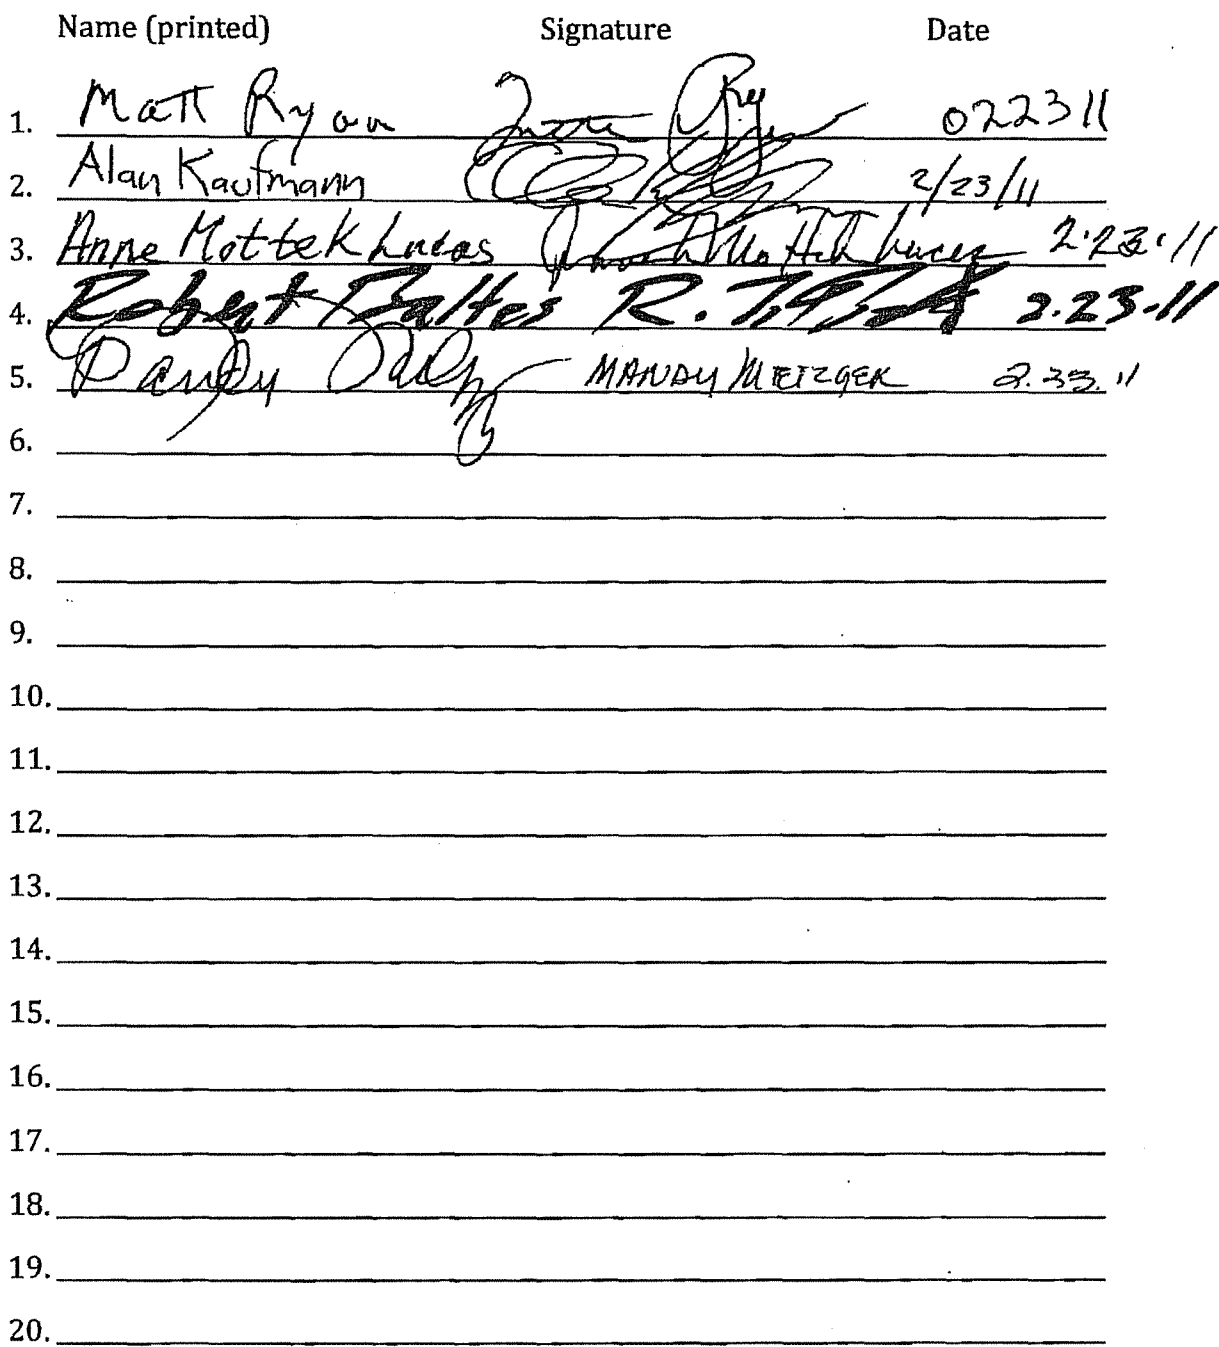 Name (printed) Signature Date
1. Matt Ryan 022311
2. Alan Kaufmann 2/23/11
3. Anne Mottek Lucas 2.23.11
4. Robert Baltes R. 2.23.11
5. MANDY METZGER 2.23.11
6.
7.
8.
9.
10.
11.
12.
13.
14.
15.
16.
17.
18.
19.
20.